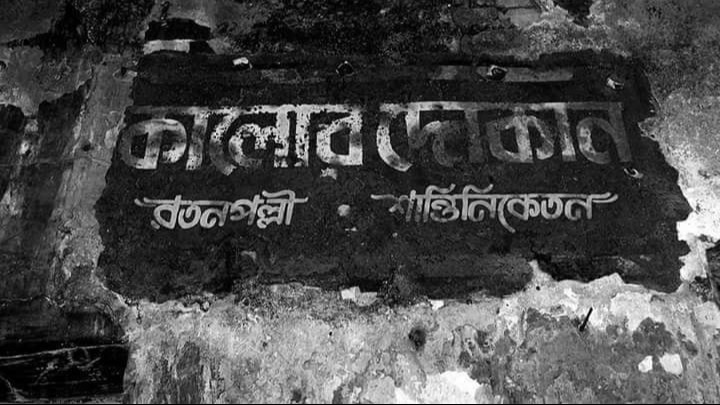 কালোর দোকান
রতনপল্লী • শান্তিনিকেতন